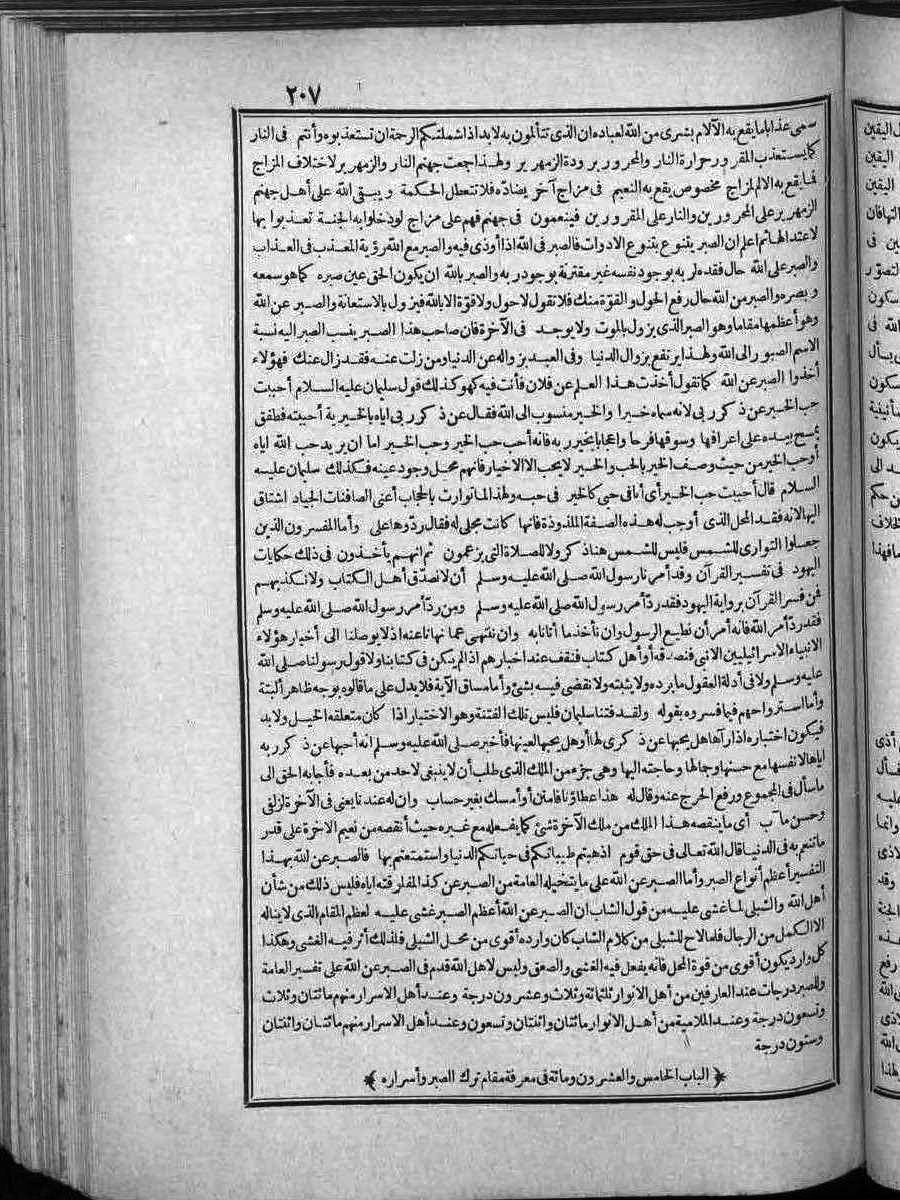 ٢٠٧
سمى عذابا ما يقع به الآلام بشرى من الله لعباده ان الذى تتألمون به لابد اذا شملتكم الرحمة ان تستعذبوه وأنتم فى النار
كما يستعذب المقرور حرارة النار والمحرور برودة الزمهرير ولهذا جمعت جهنم النار والزمهرير لاختلاف المزاج
فما يقع به الالم لمزاج مخصوص يقع به النعيم فى مزاج آخر يضاده فلا تتعطل الحكمة ويبقى الله على أهل جهنم
الزمهرير على المحرورين والنار على المقرورين فينعمون فى جهنم فهم على مزاج لو دخلوا به الجنة تعذبوا بها
لاعتدالها ثم اعلم ان الصبر يتنوع بتنوع الادوات فالصبر فى الله اذا أوذى فيه والصبر مع الله رؤية المعذب فى العذاب
والصبر على الله حال فقده لربه بوجود نفسه غير مقترنة بوجود ربه والصبر بالله ان يكون الحق عين صبره كما هو سمعه
وبصره والصبر من الله حال رفع الحول والقوة منك فلا تقول لا حول ولا قوة الا بالله فيزول بالاستعانة والصبر عن الله
وهو أعظمها مقاما وهو الصبر الذى يزول بالموت ولا يوجد فى الآخرة فان صاحب هذا الصبر ينسب الصبر اليه نسبة
الاسم الصبور الى الله ولهذا يرتفع بزوال الدنيا وفى العبد بزواله عن الدنيا ومن زلت عنه فقد زال عنك فهؤلاء
أخذوا الصبر عن الله كما تقول أخذت هذا العلم عن فلان فأنت فيه كهو وكذلك قول سليمان عليه السلام أحببت
حب الخير عن ذكر ربى لانه سماه خيرا والخير منسوب الى الله فقال عن ذكر ربى اياه بالخيرية أحببته فطفق
يمسح بيده على اعرافها وسوقها فرحا واعجابا بخير ربه فانه أحب حب الخير وحب الخير اما ان يريد حب الله اياه
أو حب الخير من حيث وصف الخير بالحب والخير لا يحب الا الاخيار فانهم محل وجود عينه فكذلك سليمان عليه
السلام قال أحببت حب الخير أى أنا فى حبى كالخير فى حبه ولهذا لما توارت بالحجاب أعنى الصافنات الجياد اشتاق
اليها لانه فقد المحل الذى أوجب له هذه الصفة الملذوذة فانها كانت مجلى له فقال ردوها على وأما المفسرون الذين
جعلوا التوارى للشمس فليس للشمس هنا ذكر ولا للصلاة التى يزعمون ثم انهم يأخذون فى ذلك حكايات
اليهود فى تفسير القرآن وقد أمرنا رسول الله صلى الله عليه وسلم أن لا نصدق أهل الكتاب ولا نكذبهم
فمن فسر القرآن برواية اليهود فقد رد أمر رسول الله صلى الله عليه وسلم ومن رد أمر رسول الله صلى الله عليه وسلم
فقد رد أمر الله فانه أمر أن نطيع الرسول وان نأخذ ما أتانا به وان ننتهى عما نهانا عنه اذ لا يوصلنا الى أخبار هؤلاء
الانبياء الاسرائيليين الا نبى فنصدقه أو أهل كتاب فنقف عند اخبارهم اذا لم يكن فى كتابنا ولا قول رسولنا صلى الله
عليه وسلم ولا فى أدلة العقول ما يرده ولا يثبته ولا نقضى فيه بشئ وأما مساق الآية فلا يدل على ما قالوه بوجه ظاهر ألبتة
وأما استرواحهم فيما فسروه بقوله ولقد فتنا سليمان فليس تلك الفتنة وهو الاختبار اذا كان متعلقه الخيل ولا بد
فيكون اختباره اذا رآها هل يحبها عن ذكرى لها أو هل يحبها لعينها فأخبر صلى الله عليه وسلم انه أحبها عن ذكر ربه
اياها لا لنفسها مع حسنها وجمالها وحاجته اليها وهى جزء من الملك الذى طلب أن لا ينبغى لاحد من بعده فأجابه الحق الى
ما سأل فى المجموع ورفع الحرج عنه وقال له هذا عطاؤنا فامنن أو أمسك بغير حساب وان له عندنا يعنى فى الآخرة لزلفى
وحسن مآب أى ما ينقصه هذا الملك من ملك الآخرة شئ كما يفعله مع غيره حيث أنقصه من نعيم الآخرة على قدر
ما تنعم به فى الدنيا قال الله تعالى فى حق قوم اذهبتم طيباتكم فى حياتكم الدنيا واستمتعتم بها فالصبر عن الله بهذا
التفسير أعظم أنواع الصبر وأما الصبر عن الله على ما يتخيله العامة من الصبر عن كذا لمفارقته اياه فليس ذلك من شأن
أهل الله والشبلى لما غشى عليه من قول الشاب ان الصبر عن الله أعظم الصبر غشى عليه لعظم المقام الذى لا يناله
الا الكمل من الرجال فلما لاح للشبلى من كلام الشاب كان وارده أقوى من محل الشبلى فلذلك أثر فيه الغشى وهكذا
كل وارد يكون أقوى من قوة المحل فانه يفعل فيه الغشى والصعق وليس لاهل الله قدم فى الصبر عن الله على تفسير العامة
وللصبر درجات عند العارفين من أهل الانوار ثلثمائة وثلاث وعشرون درجة وعند أهل الاسرار منهم مائتان وثلاث
وتسعون درجة وعند الملامية من أهل الانوار مائتان واثنتان وتسعون وعند أهل الاسرار منهم مائتان واثنتان
وستون درجة
﴿الباب الخامس والعشرون ومائة فى معرفة مقام ترك الصبر وأسراره﴾